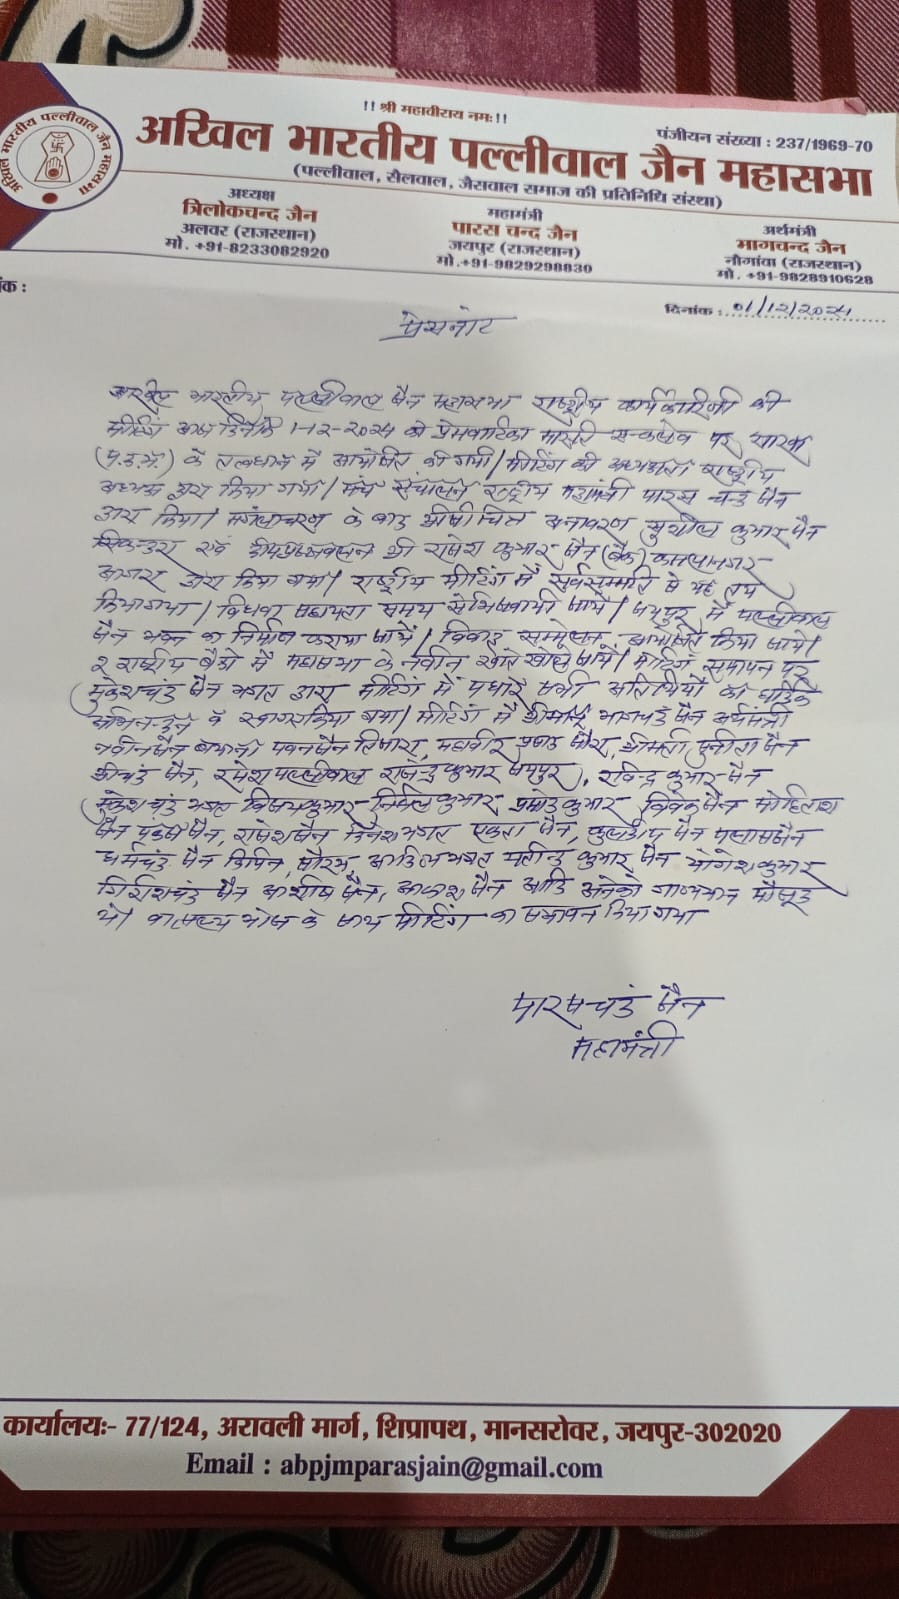 !! श्री महावीराय नमः!!
पंजीयन संख्या : 237/1969-70
अखिल भारतीय पल्लीवाल जैन महासभा
(पल्लीवाल, सैलवाल, जैसवाल समाज की प्रतिनिधि संस्था)
अखिल भारतीय पल्लीवाल जैन महासभा
अध्यक्ष
त्रिलोकचन्द जैन
अलवर (राजस्थान)
मो. +91-8233082920
महामंत्री
पारस चन्द जैन
जयपुर (राजस्थान)
मो.+91-9829298830
अर्थमंत्री
भागचन्द जैन
नौगांवा (राजस्थान)
मो. +91-9828910628
ंक :
दिनांक : 01/12/2024
प्रेसनोट
अखिल भारतीय पल्लीवाल जैन महासभा राष्ट्रीय कार्यकारिणी की
मीटिंग आज दिनांक 1-12-2024 को प्रेमवाटिका पर शाखा
के तत्वधान में आयोजित की गयी। मीटिंग की अध्यक्षता राष्ट्रीय
अध्यक्ष द्वारा किया गया। मंच संचालन राष्ट्रीय महामंत्री पारस चन्द जैन
द्वारा किया। मंगलाचरण के बाद अनावरण सुशील कुमार जैन
सिकन्दरा एवं दीपप्रज्जवलन श्री राजेश कुमार जैन (बैंक) कमलानगर
आगरा द्वारा किया गया। राष्ट्रीय मीटिंग में सर्वसम्मति से यह तय
किया गया। विधवा सहायता समय से जाये। जयपुर में पल्लीवाल
जैन भवन का निर्माण कराया जाये। विवाह सम्मेलन आयोजित किया जाये।
2 राष्ट्रीय बैंको में महासभा के नवीन खाते खोले जाये। मीटिंग समापन पर
मुकेशचंद जैन भगत द्वारा मीटिंग में पधारे सभी अतिथियों का हार्दिक
अभिनन्दन व स्वागत किया गया। मीटिंग में श्रीमान् भागचंद जैन अर्थमंत्री
नवीन जैन पवन जैन तिजारा, महावीर प्रसाद जैन, श्रीमती पुनीता जैन
श्रीचंद जैन, रमेश पल्लीवाल राजेन्द्र कुमार जयपुर, रविन्द्र कुमार जैन
मुकेश चंद भगत विजय कुमार निर्मल कुमार, प्रमोद कुमार विवेक जैन
जैन जैन, राजेश जैन दिनेश भगत जैन, कुलदीप जैन पलाश जैन
धर्मचंद जैन विपिन, सौरभ, कुमार जैन योगेश कुमार
गिर्राशचंद जैन आशीष जैन, आकाश जैन आदि अनेको गणमान मौजूद
थे। वात्सल्य भोज के साथ मीटिंग का समापन किया गया
पारसचंद जैन
महामंत्री
कार्यालयः- 77/124, अरावली मार्ग, शिप्रापथ, मानसरोवर, जयपुर-302020
Email : abpjmparasjain@gmail.com